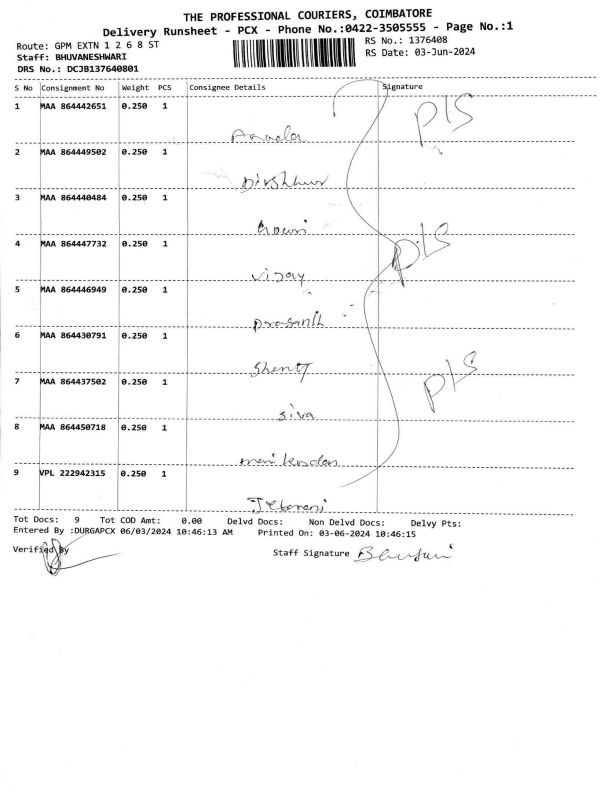 THE PROFESSIONAL COURIERS, COIMBATORE
Delivery Runsheet - PCX - Phone No.:0422-3505555 - Page No.:1
Route: GPM EXTN 1 2 6 8 ST
RS No.: 1376408
Staff: BHUVANESHWARI
RS Date: 03-Jun-2024
DRS No.: DCJB137640801
S No Consignment No Weight PCS Consignee Details Signature
1 MAA 864442651 0.250 1
PLS
2 MAA 864449502 0.250 1
3 MAA 864440484 0.250 1
Gowri
4 MAA 864447732 0.250 1
PLS
vijay
5 MAA 864446949 0.250 1
prasanth
6 MAA 864430791 0.250 1
PLS
7 MAA 864437502 0.250 1
siva
8 MAA 864450718 0.250 1
9 VPL 222942315 0.250 1
Tot Docs: 9 Tot COD Amt: 0.00 Delvd Docs: Non Delvd Docs: Delvy Pts:
Entered By :DURGAPCX 06/03/2024 10:46:13 AM Printed On: 03-06-2024 10:46:15
Verified By Staff Signature